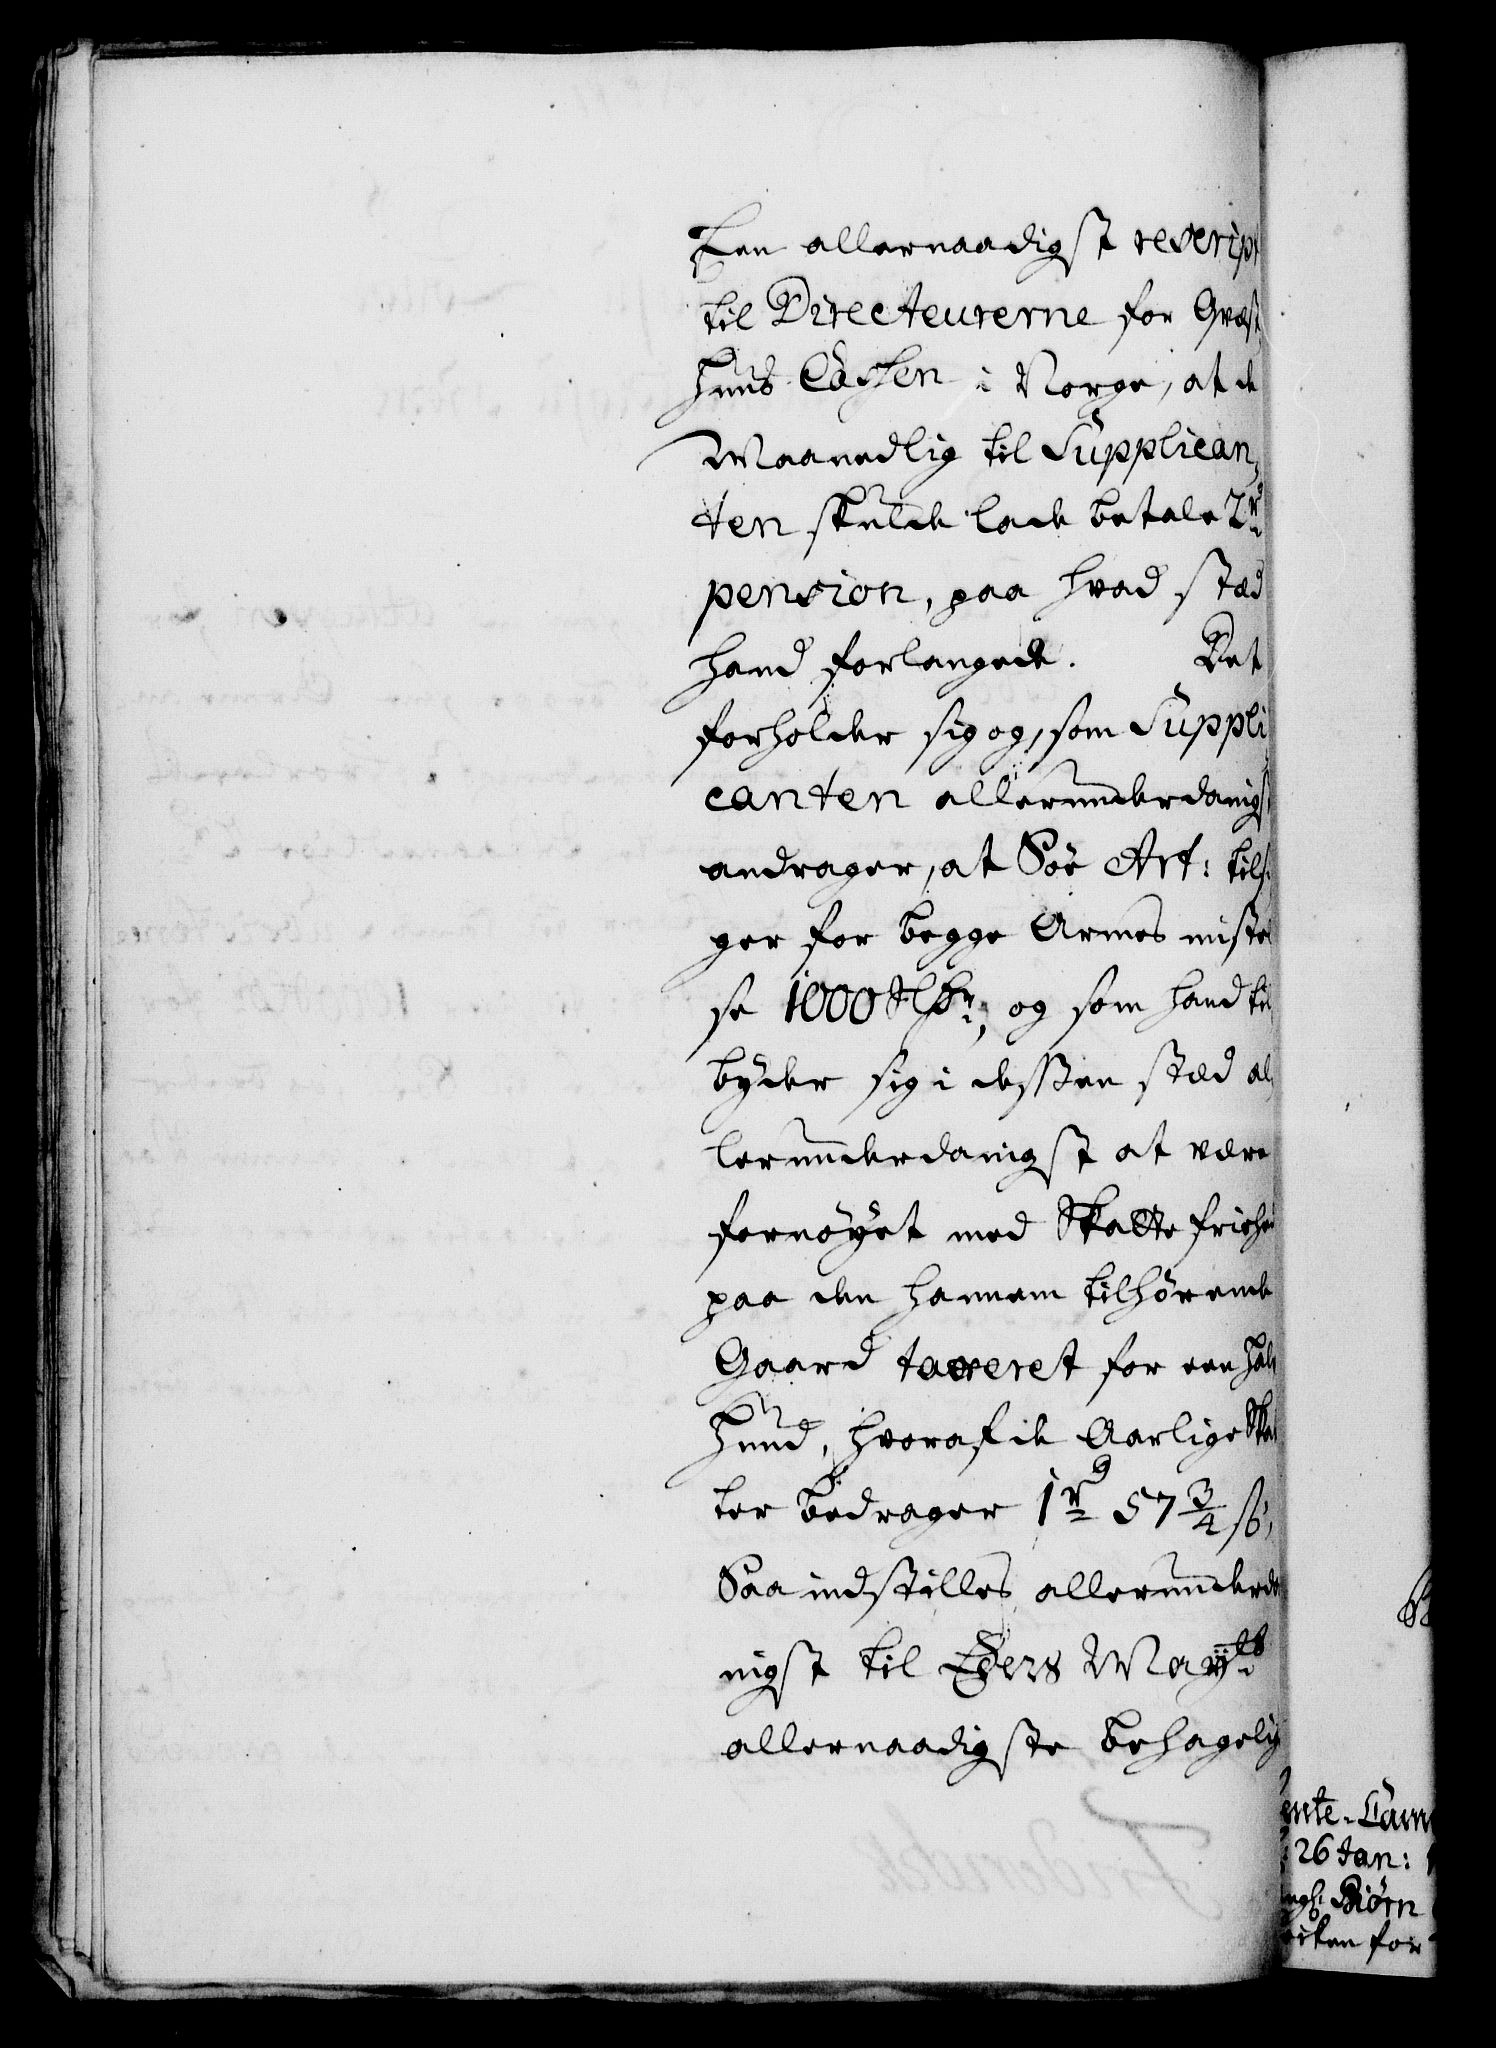 Een allernaadigst rescript
til Directeurerne for Qvæst
huus Cassen i Norge, at de
Maanedlig til Supplican,
ten skulde lade betale 2 rd
pension, paa hvad stæd
hand forlangede. Det
forholder sig og, som Suppli
canten allerunderdanigst
andrager, at Søe Art: till
ger for begge Armes miste
se 1000 Rdr, og som hand til
byder sig i dessen stæd al,
lerunderdanigst at være
fornøyet med Skatte friehe
paa den hannem tilhørende
Gaard taxeret for een halv
Huud, hvoraf de Aarlige Skat
ter bedrager 1 rd 57 3/4 ß,
Saa indstilles allerunderda
nigst til Eders Mayts
allernaadigste behagelig
ente-Cam
26 Jan:
Biørn
for